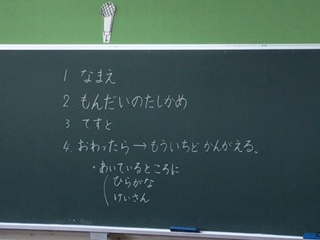 1 なまえ
2. もんだいのたしかめ
3 てすと
4. おわったら→もういちどかんがえる、
・あいているところに
ひらがな
けいさん